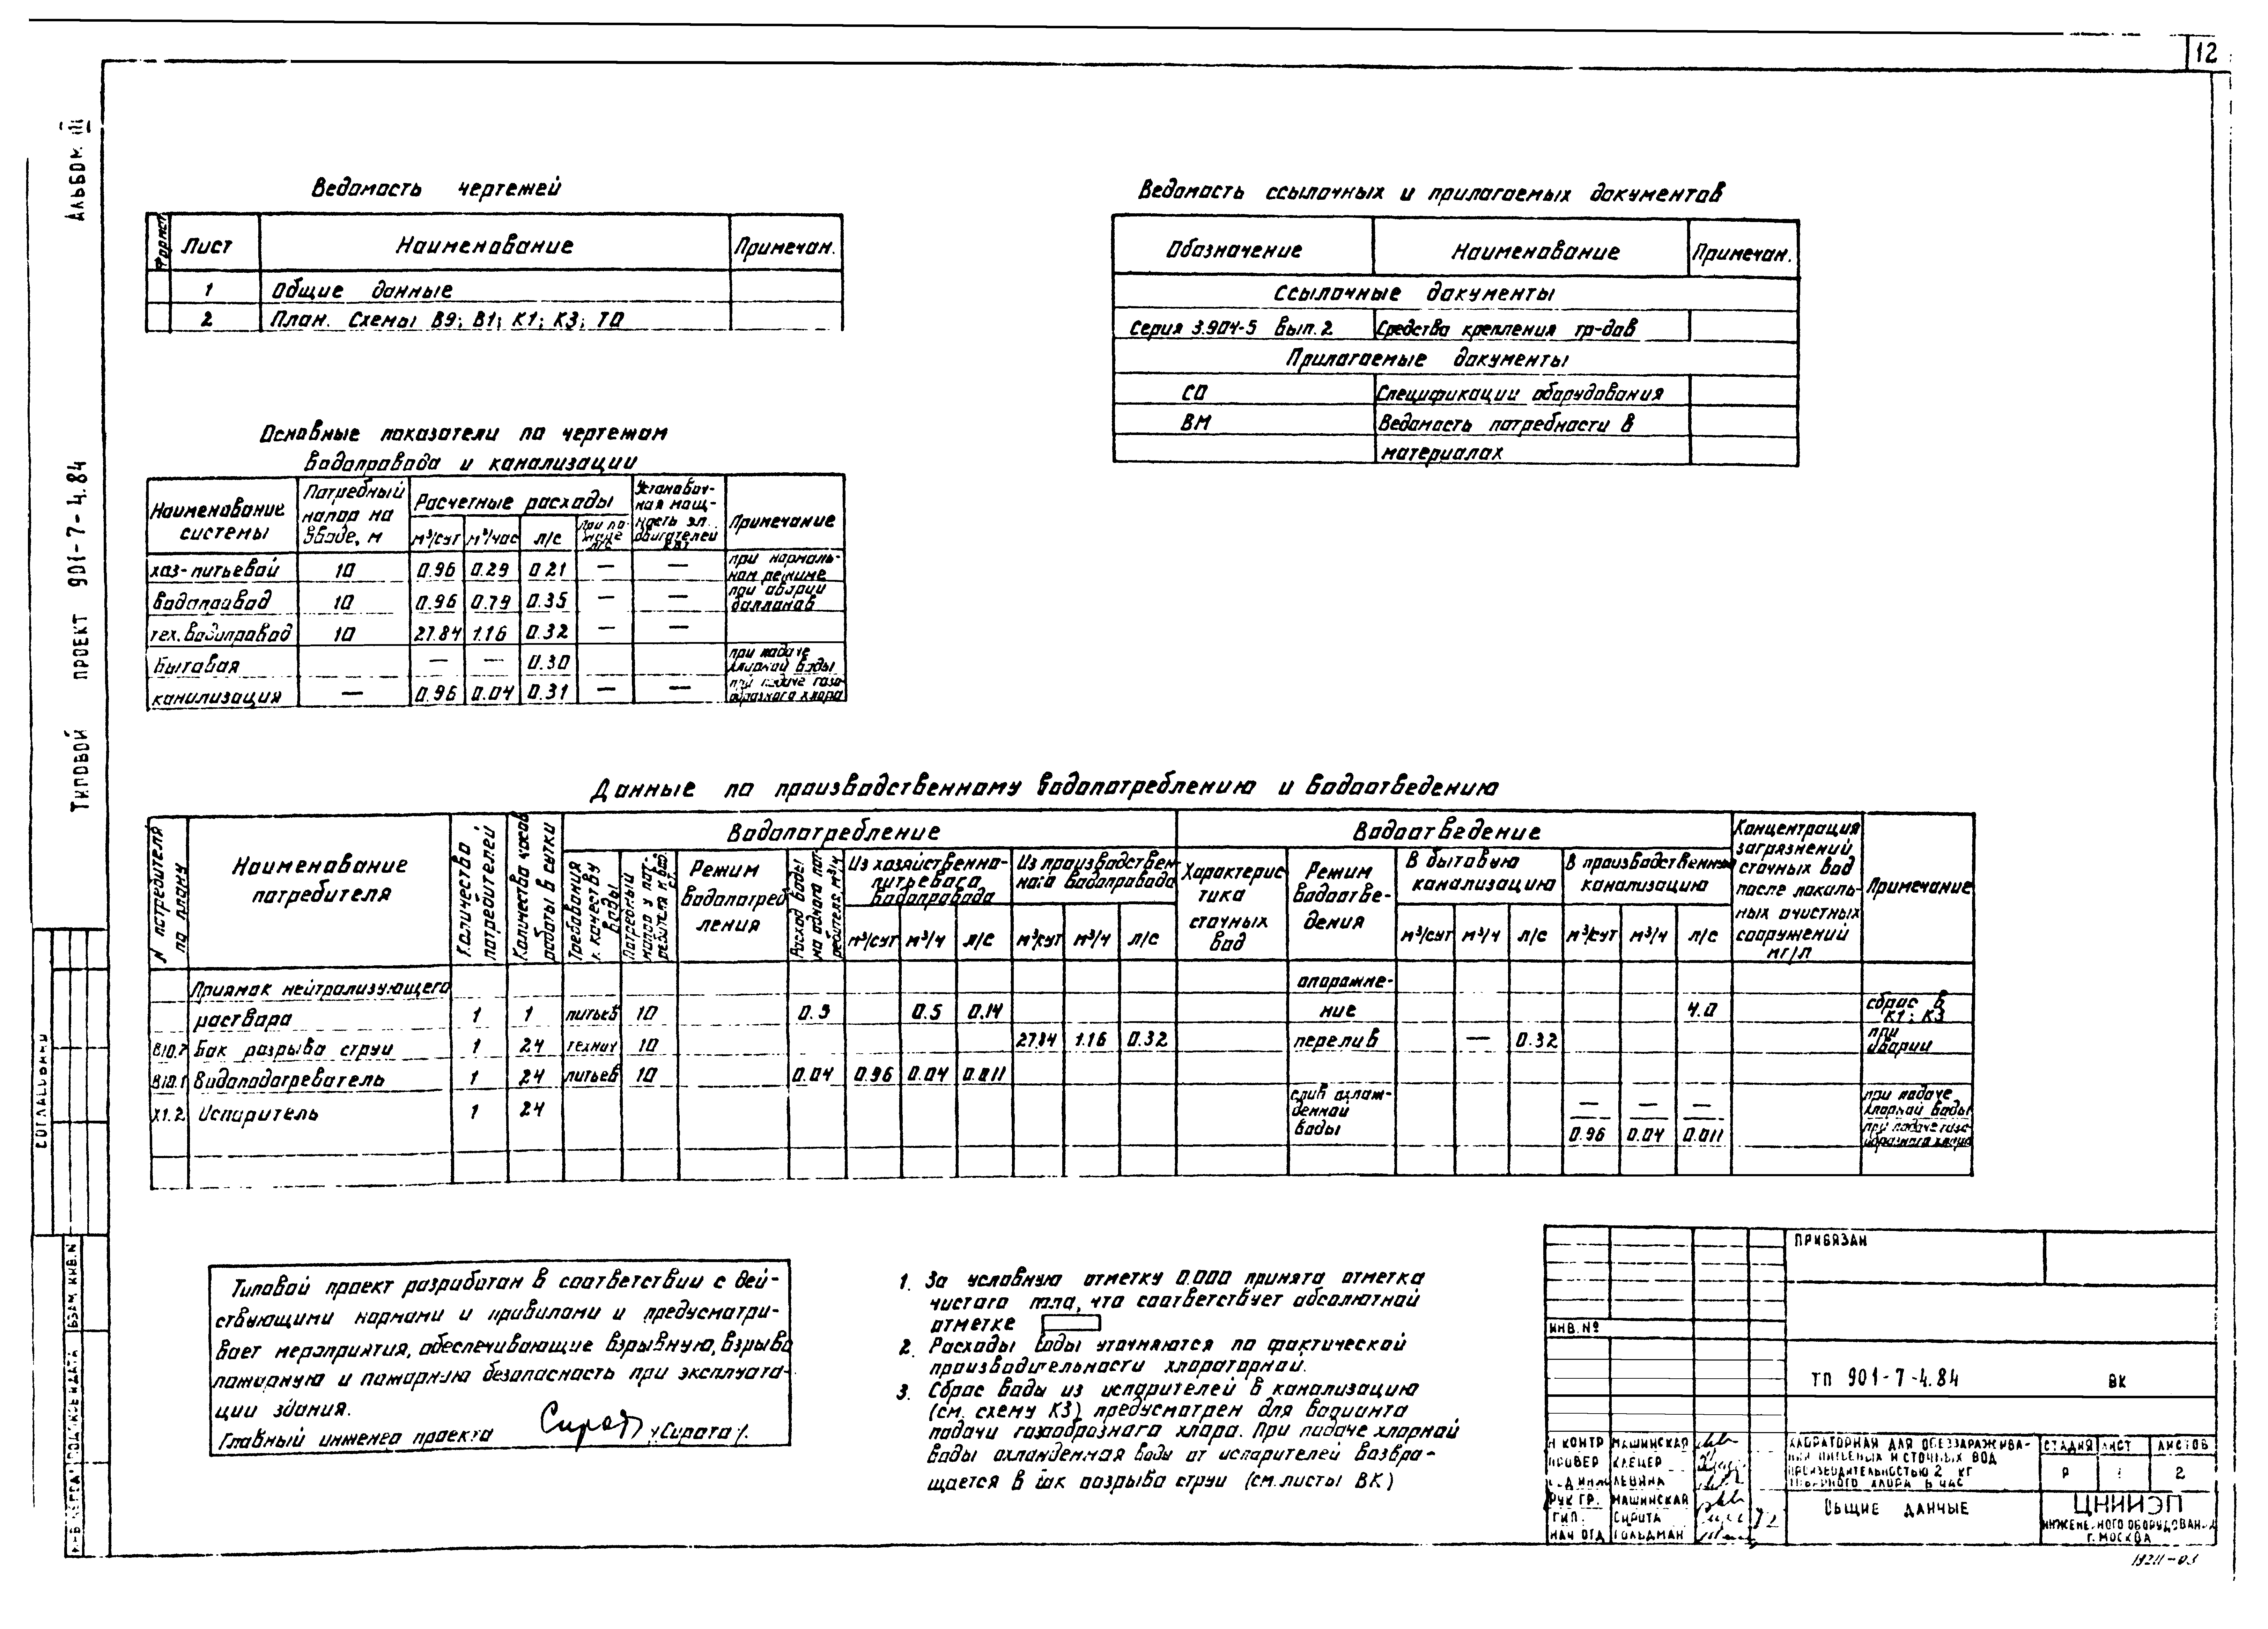 12
Альбом III
Типовой проект 901-7-4.84
Ведомость чертежей
Формат Лист Наименование Примечан.
1 Общие данные
2 План. Схемы В9; В1; К1; К3; Т0
Ведомость ссылочных и прилагаемых документов
Обозначение Наименование Примечан.
Ссылочные документы
Серия 3.904-5 вып. 2 Средства крепления тр-дов
Прилагаемые документы
СО Спецификации оборудования
ВМ Ведомость потребности в
материалах
Основные показатели по чертежам
водопровода и канализации
Наименование системы Потребный напор на вводе, м Расчетные расходы Установоч-ная мощ-ность эл. двигателей кВт Примечание
м³/сут м³/час л/с При по-жаре л/с
хоз-питьевой 10 0.96 0.29 0.21 — — при нормаль-ном режиме
водопровод 10 0.96 0.79 0.35 — — при аварии баллонов
тех. водопровод 10 27.84 1.16 0.32 — —
Бытовая — — 0.30 при подаче хлорной воды
канализация — 0.96 0.04 0.31 — — при подаче газо-образного хлора
Данные по производственному водопотреблению и водоотведению
N потребителя по плану Наименование потребителя Количество потребителей Количество часов работы в сутки Водопотребление Водоотведение Концентрация загрязнений сточных вод после локаль-ных очистных сооружений мг/л Примечание
Требования к качеству воды Потребный напор у пот-ребителя м вод. ст. Режим водопотреб ления Расход воды на одного пот-ребителя, м³/ч Из хозяйственно-питьевого водопровода Из производствен-ного водопровода Характерис тика сточных вод Режим водоотве-дения В бытовую канализацию В производственную канализацию
м³/сут м³/ч л/с м³/сут м³/ч л/с м³/сут м³/ч л/с м³/сут м³/ч л/с
Приямок нейтрализующего опорожне-
раствора 1 1 питьев 10 0.5 0.14 ние 4.0 сброс в К1; К3
В10.7 Бак разрыва струи 1 24 технич 10 27.84 1.16 0.32 перелив — 0.32 при аварии
В10.1 Водоподогреватель 1 24 питьев 10 0.04 0.96 0.04 0.011
Х1.2 Испаритель 1 24 слив охлаж-денной воды — — — при подаче хлорной воды
0.96 0.04 0.011 при подаче газо-образного хлора
Типовой проект разработан в соответствии с дей-
ствующими нормами и правилами и предусматри-
вает мероприятия, обеспечивающие взрывную, взрыво
пожарную и пожарную безопасность при эксплуата-
ции здания.
Главный инженер проекта /Сирота/.
1. За условную отметку 0.000 принята отметка
чистого пола, что соответствует абсолютной
отметке
2. Расходы воды уточняются по фактической
производительности хлораторной.
3. Сброс воды из испарителей в канализацию
(см. схему К3) предусмотрен для варианта
подачи газообразного хлора. При подаче хлорной
воды охлажденная вода от испарителей возвра-
щается в бак разрыва струи (см. листы ВК)
Согласовано
Взам. инв. N
Подпись и дата
Привязан
Инв. №
ТП 901-7-4.84 ВК
Н контр Машинская
Провер Клецер
Левина
Рук гр. Машинская
ГИП. Сирота
Нач отд Гольдман
Хлораторная для обеззаражива-
ния питьевых и сточных вод
производительностью 2 кг
товарного хлора в час
Стадия Лист Листов
Р 1 2
Общие данные
ЦНИИЭП
инженерного оборудования
г. Москва